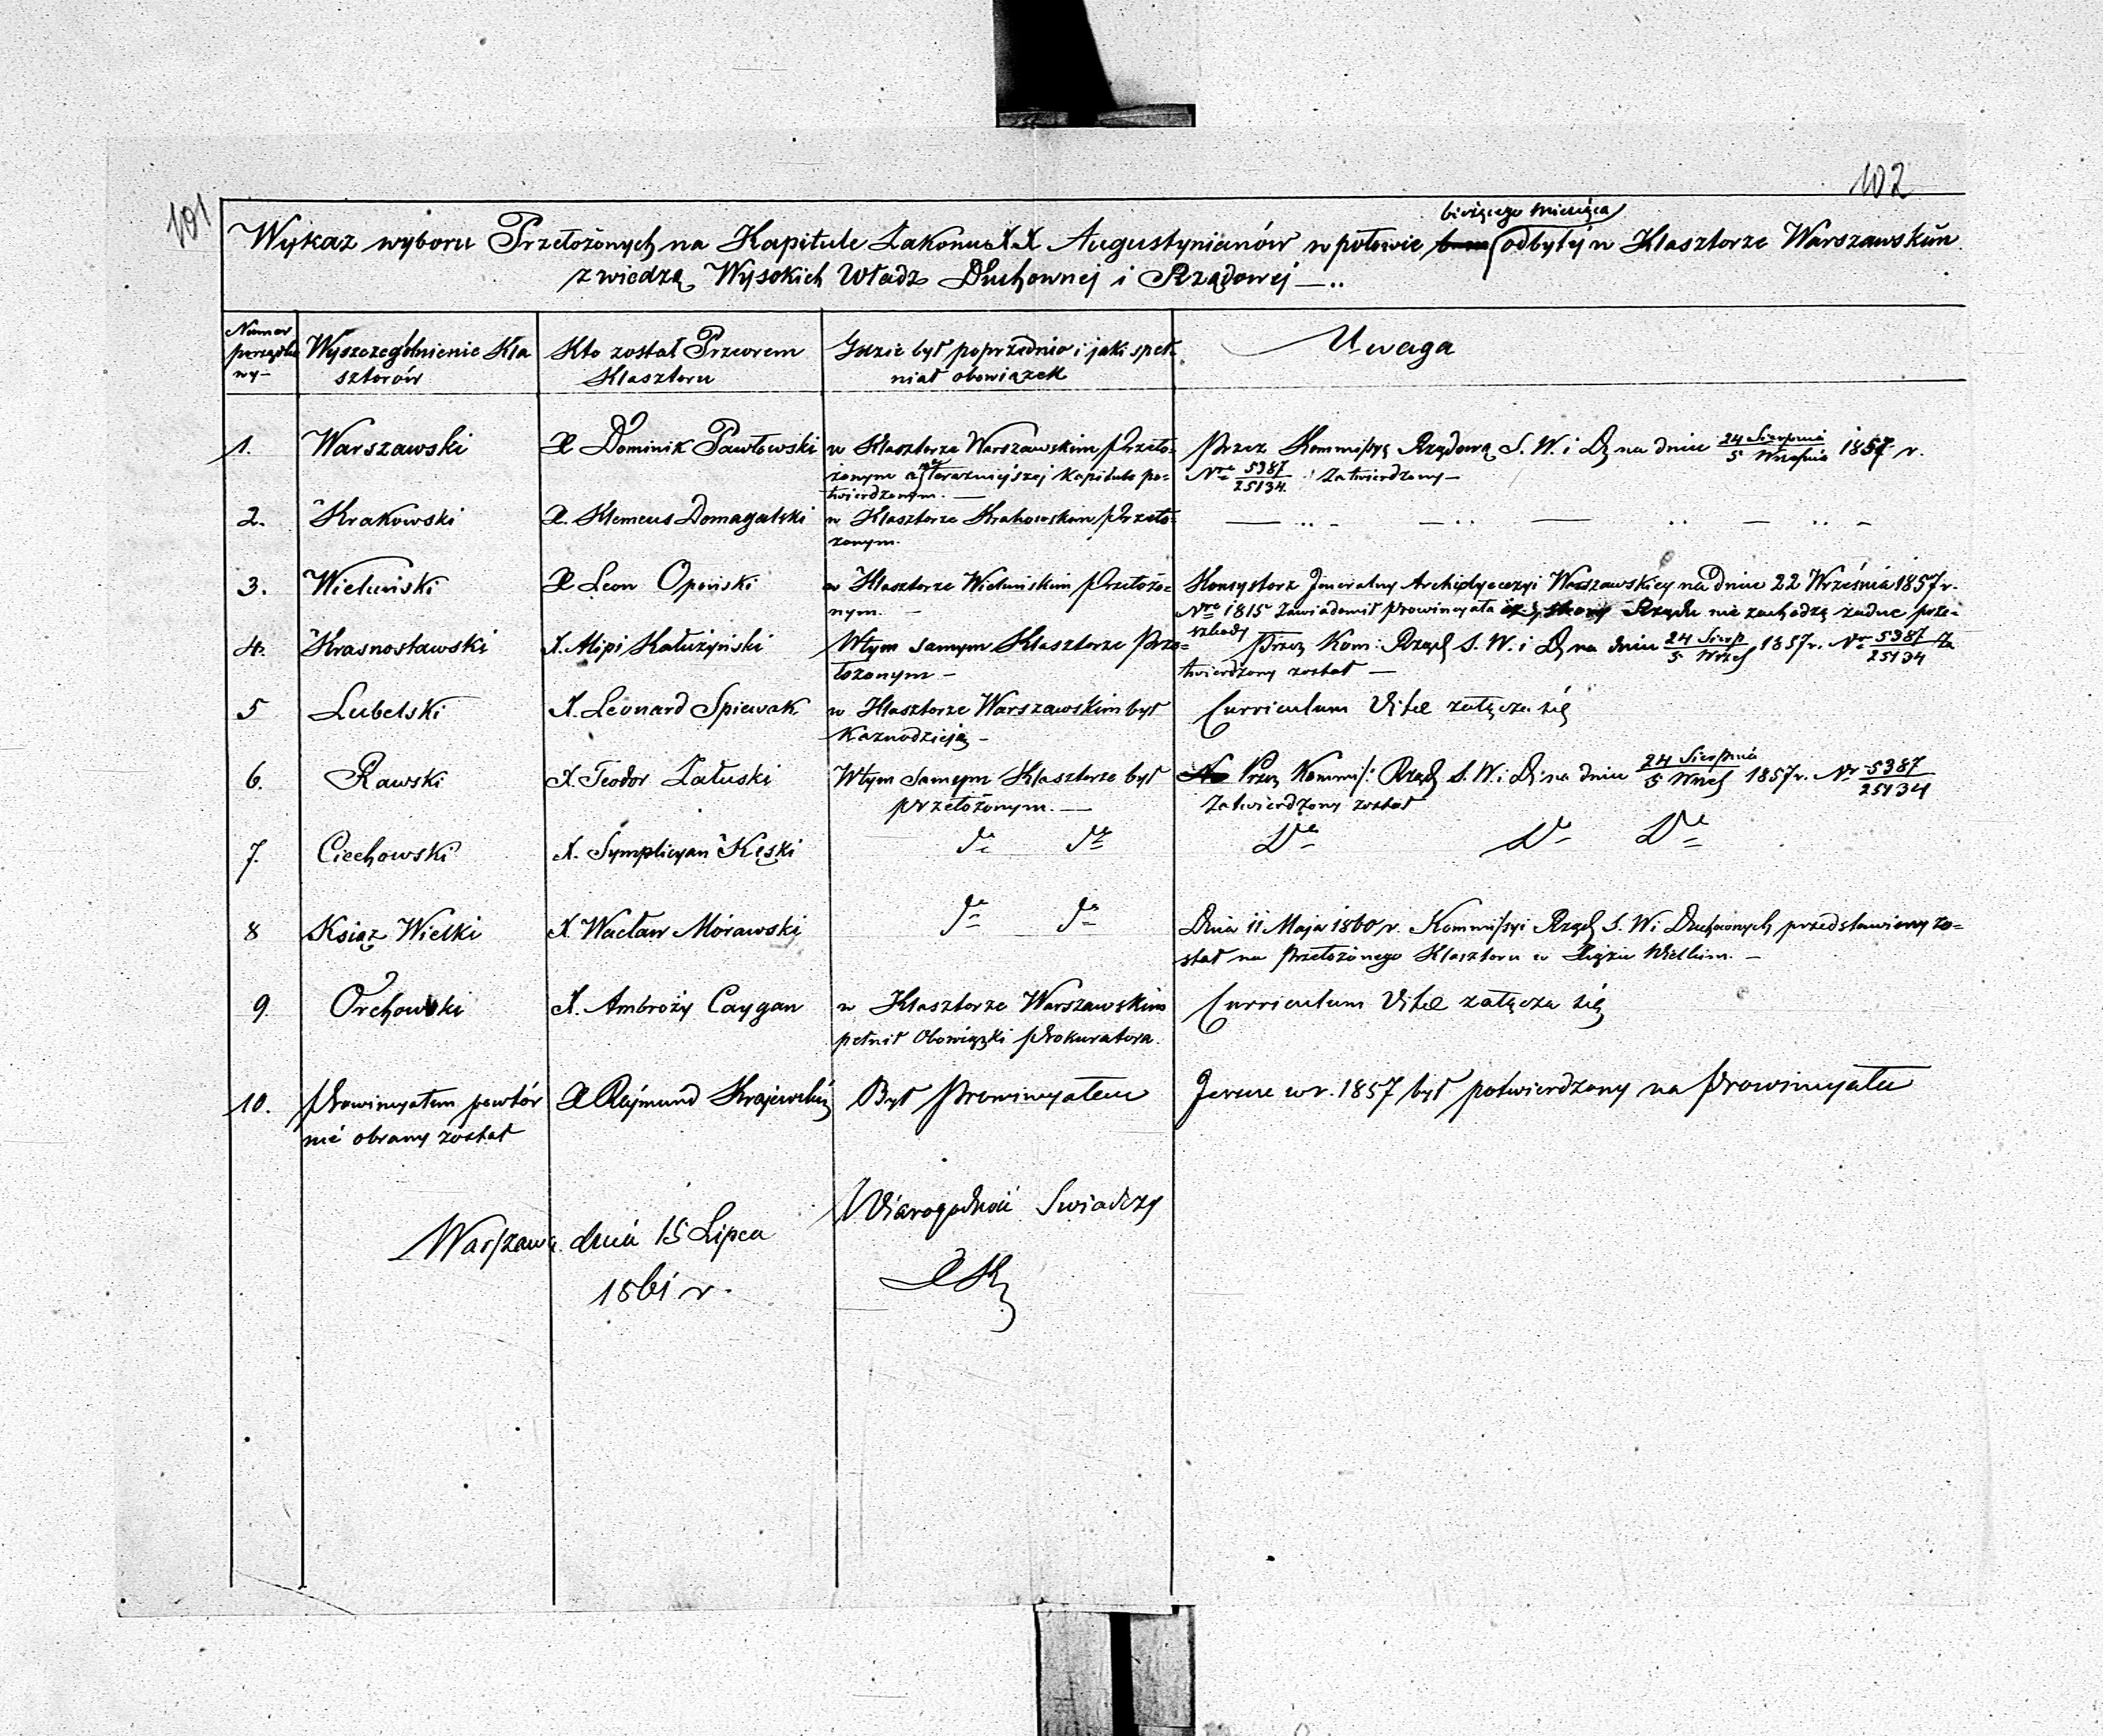 101
102
bieżącego miesiąca
Wykaz wyboru Przełożonych na Kapitule Zakonu XX Augustynianów w połowie odbytéj w Klasztorze Warszawskim
z wiedzą Wysokich Władz Duchownej i Rządowej —..
Numer porządkowy — Wyszczególnienie Klasztorów Kto został Przeorem Klasztoru Gdzie był poprzednio i jaki spełniał obowiązek Uwaga
1. Warszawski X Dominik Pawłowski w Klasztorze Warszawskim Przeło- Przez Kommissyą Rządową S. W. i D. na dniu 24 Sierpnia / 5 Września 1857 r.
żonym a na teraźniejszej Kapitule po- Nro 5387/25134. Zatwierdzony —
twierdzonym. —
2. Krakowski X. Klemens Domagalski w Klasztorze Krakowskim Przeło- — .. - — .. — .. — .. -
żonym.
3. Wieluński X Leon Opoński w Klasztorze Wieluńskim Przełożo- Konsystorz Jeneralny Archidyecezyi Warszawskiey na dniu 22 Września 1857 r.
nym. — Nro 1815 zawiadomił Prowincyała iż ze strony Rządu nie zachodzą żadne prze-
szkody
4. Krasnostawski X. Alipi Kałużyński W tym samym Klasztorze Prze- Przez Kom: Rząd S. W. i D. na dniu 24 Sierp / 5 Wrześ 1857 r. Nr 5387/25134 Za
łożonym — twierdzony został —
5 Lubelski X. Leonard Spiewak w Klasztorze Warszawskim był Curriculum Vitae załącza się
Kaznodzieją —
6. Rawski X. Teodor Załuski W tym samym Klasztorze był Przez Kommis: Rząd S. W. i D. na dniu 24 Sierpnia / 5 Wrześ 1857 r. Nr 5387/25134
przełożonym. — Zatwierdzony został
7. Ciechowski X. Symplicyan Kęski do do Do Do Do
8 Książ Wielki X. Wacław Morawski do do Dnia 11 Maja 1860 r. Kommissyi Rząd S. W i Duchownych przedstawiony zo-
stał na Przełożonego Klasztoru w Książu Wielkim. —
9. Orchowski X. Ambroży Caygan w Klasztorze Warszawskim Curriculum Vitae załącza się
pełnił Obowiązki Prokuratora.
10. Prowincyałem powtór X Rajmund Krajewski Był Prowincyałem Jescze w r. 1857 był potwierdzony na Prowincyała
nie obrany został
Wiarogodność Swiadczy
Warszawa dnia 15 Lipca
1861 r.